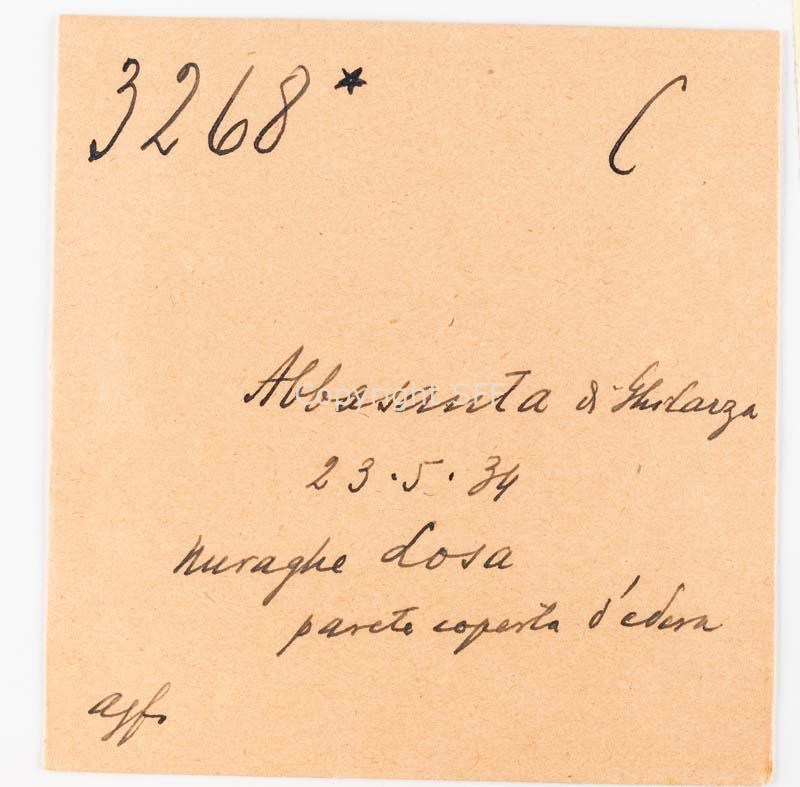 3268* C
Abbasanta di Ghilarza
23.5.34
nuraghe Losa
parete coperta d'edera
agf.
Copyright SFF